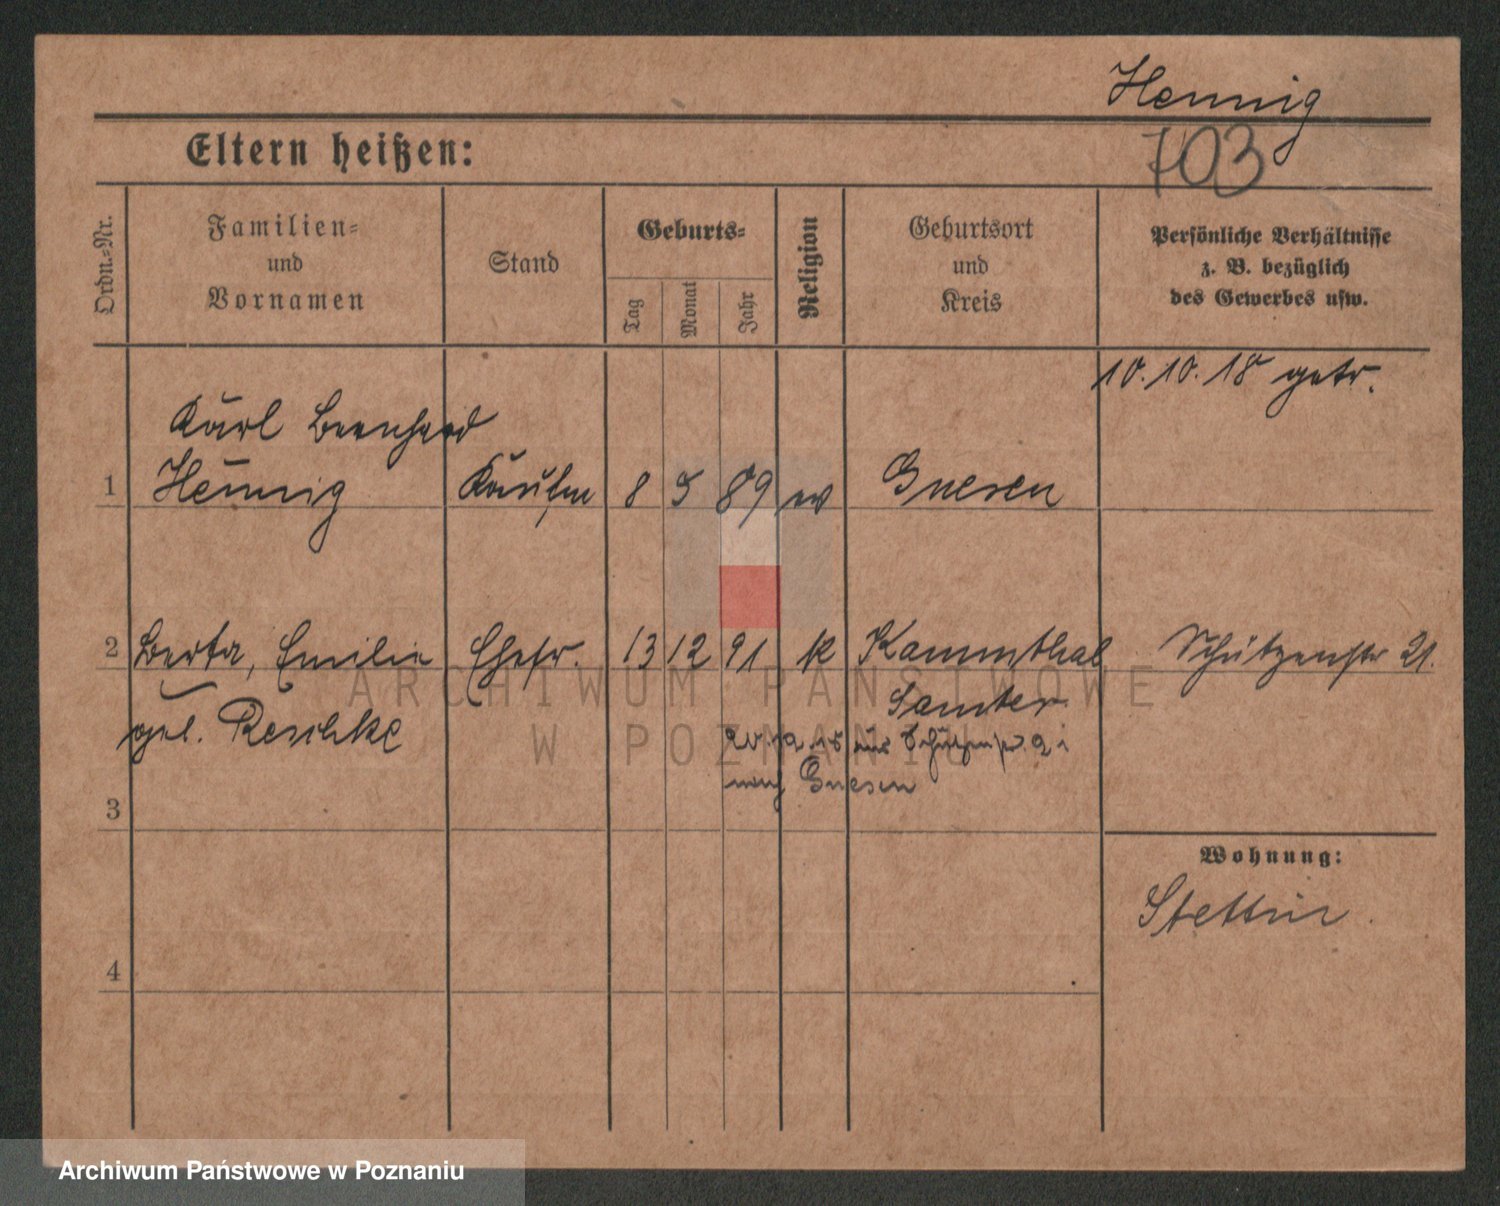 Hennig
703
Eltern heißen:
Ordn.-Nr.
Familien-
und
Vornamen
Stand
Geburts-
Tag
Monat
Jahr
Religion
Geburtsort
und
Kreis
Persönliche Verhältnisse
z. B. bezüglich
des Gewerbes usw.
10.10.18 getr.
Karl Bernhard
1 Hennig Kaufm 8 5 89 ev Gnesen
2 Berta, Emilie Ehefr. 13 12 91 k Kammthal Schützenstr 21.
Samter
geb. Reschke
aus Schützenstr. 21
nach Gnesen
3
Wohnung:
Stettin.
4
ARCHIWUM PAŃSTWOWE
W POZNANIU
Archiwum Państwowe w Poznaniu